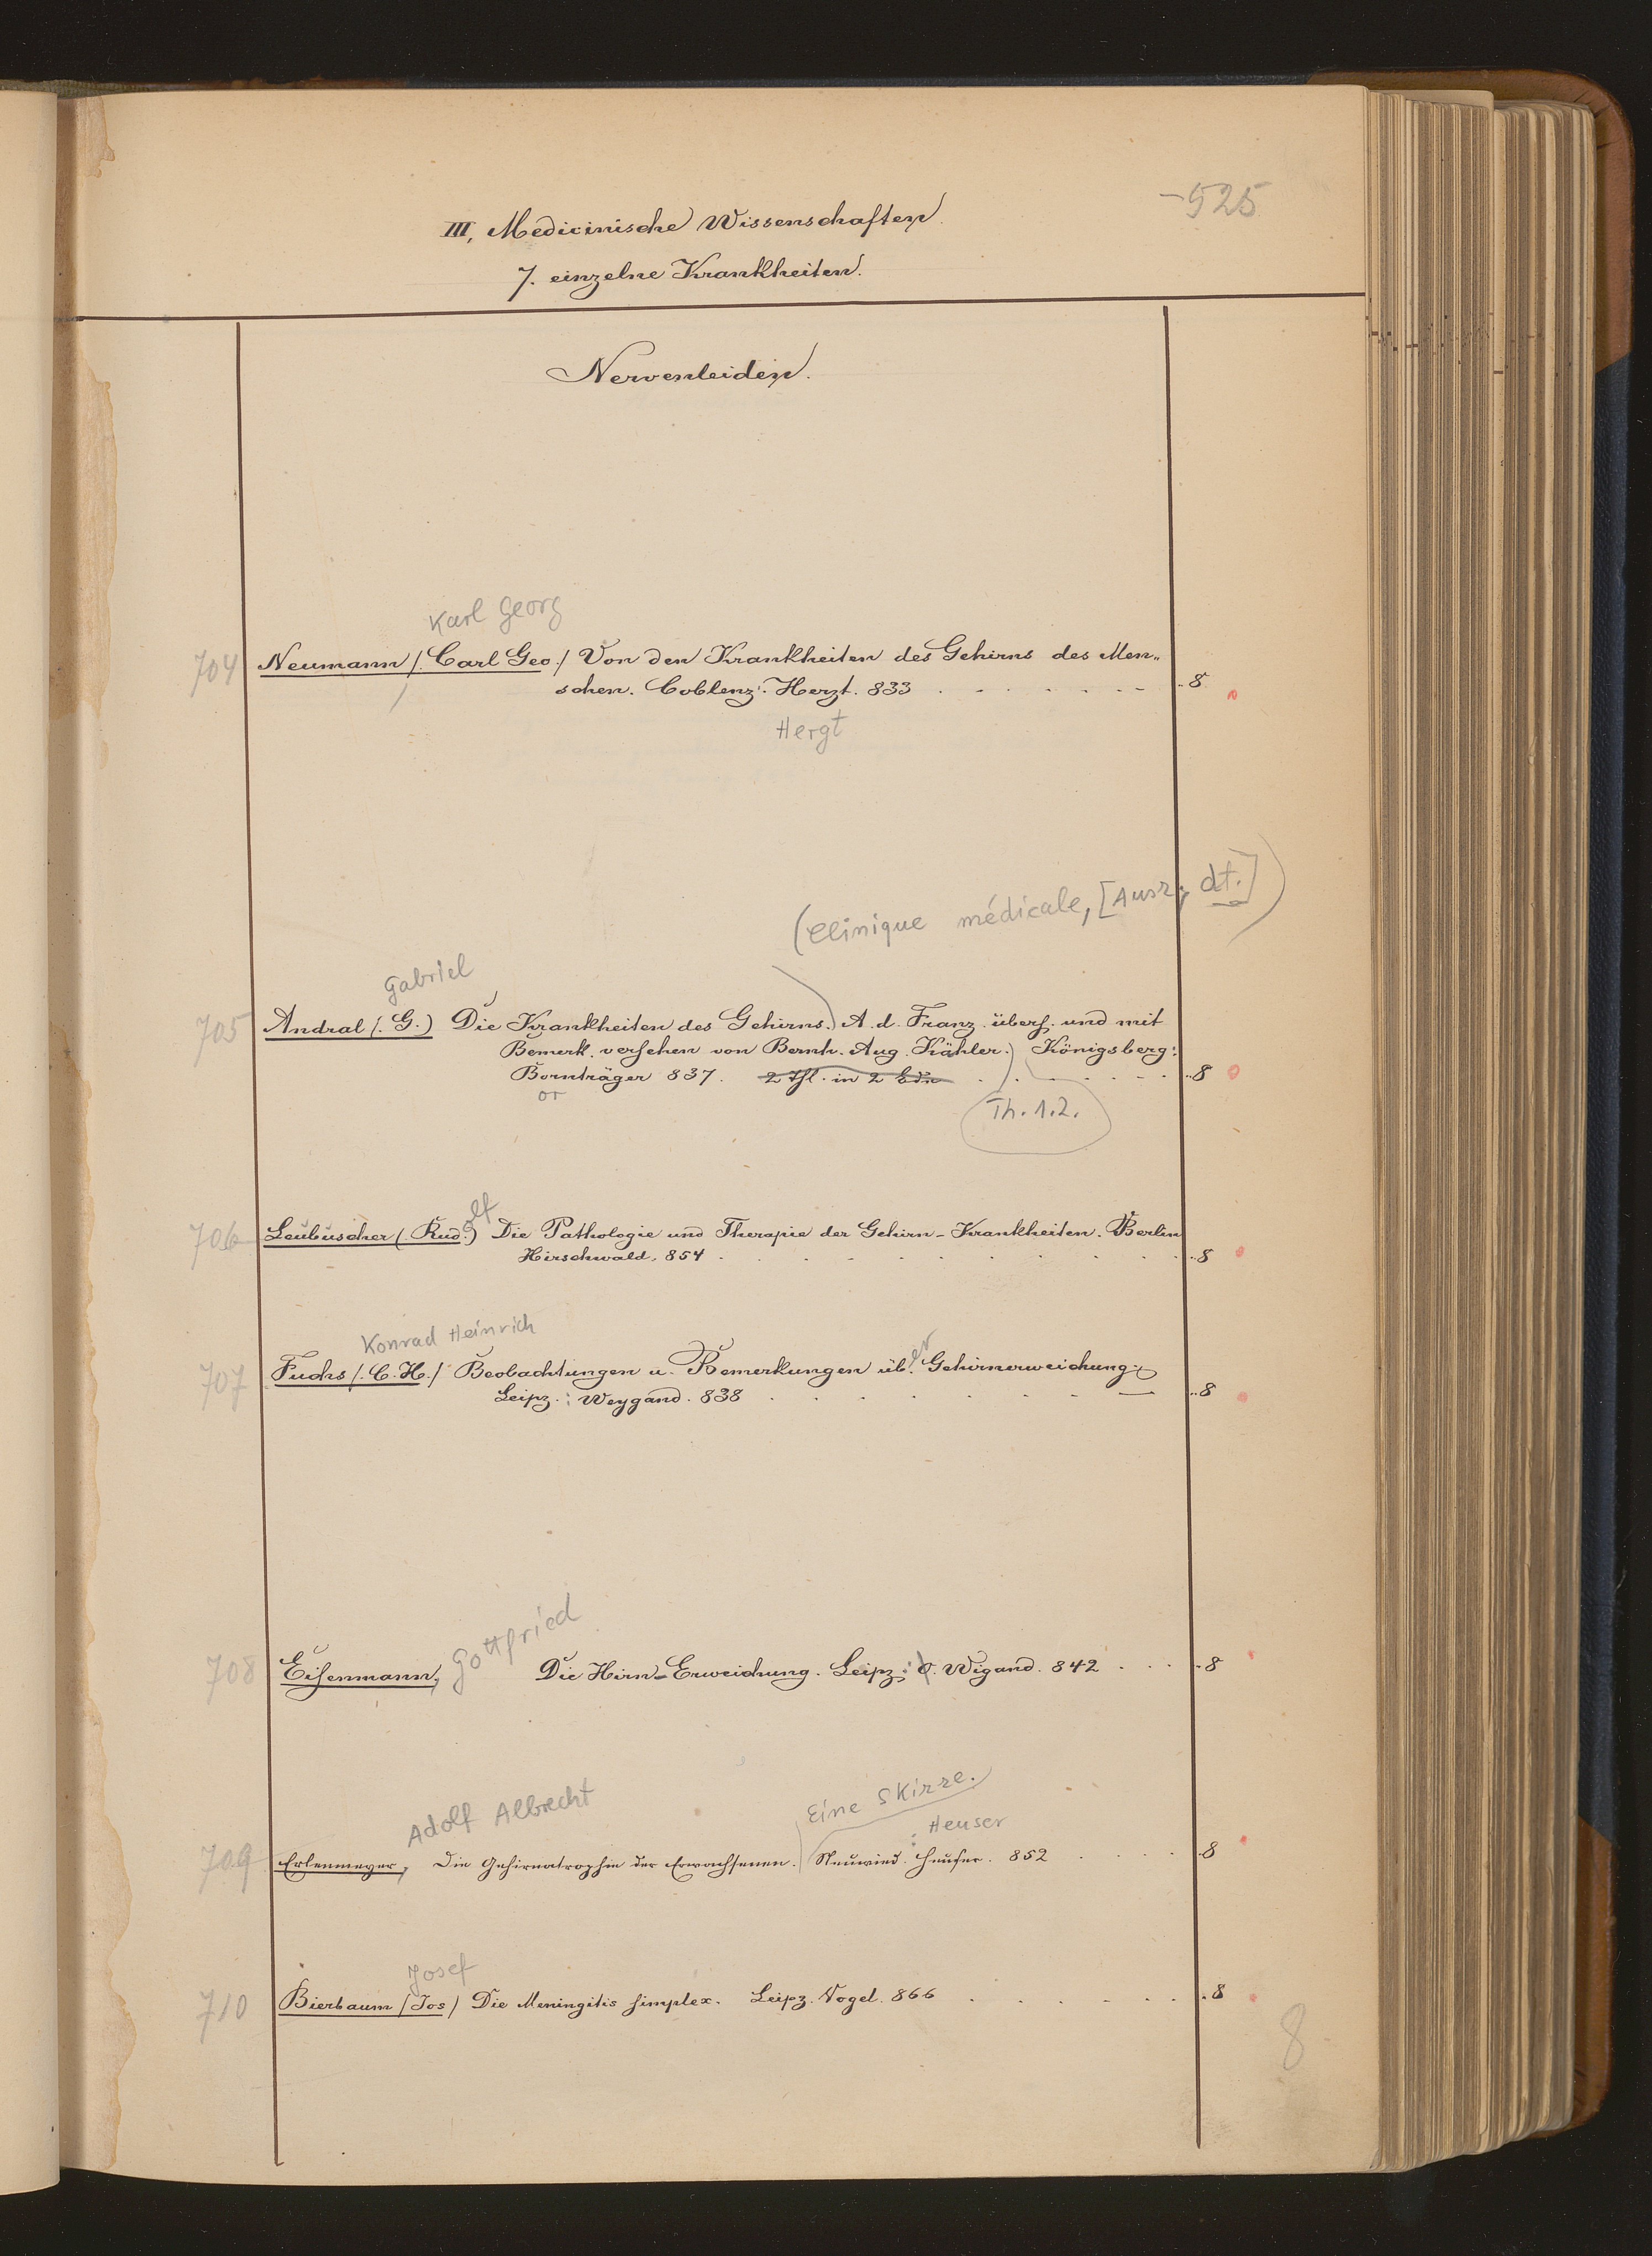 -525
III, Medicinische Wissenschaften.
7. einzelne Krankheiten.
Nervenleiden.
Karl Georg
704 Neumann /. Carl Geo./ Von den Krankheiten des Gehirns des Men„
schen. Coblenz: Herzt. 833 . . . . . . . . 8
Hergt
(Clinique médicale, [Ausz., dt.])
Gabriel
705 Andral (. G.) Die Krankheiten des Gehirns. A. d. Franz. übers. und mit
Bemerk. versehen von Bernh. Aug. Kähler.) Königsberg:
Bornträger 837. 2 Thl. in 2 Bdn . . . . . . 8
or Th. 1.2.
olf
706 Leubuscher (. Rud.) Die Pathologie und Therapie der Gehirn-Krankheiten. Berlin
Hirschwald. 854 . . . . . . . . . . 8
Konrad Heinrich er
707 Fuchs /. C. H./ Beobachtungen u. Bemerkungen üb. Gehirnerweichung.
Leipz.: Weygand. 838 . . . . . . . 8
Gottfried
708 Eisenmann, Die Hirn-Erweichung. Leipz: O. Wigand. 842 . . . 8
Adolf Albrecht Eine Skizze.
: Heuser
709 Erlenmeyer, Die Gehirnatrophie der Erwachsenen. Neuwied. Heuser. 852 . . . . 8
Josef
710 Bierbaum / Jos / Die Meningitis simplex. Leipz. Vogel. 866 . . . . . . 8
8